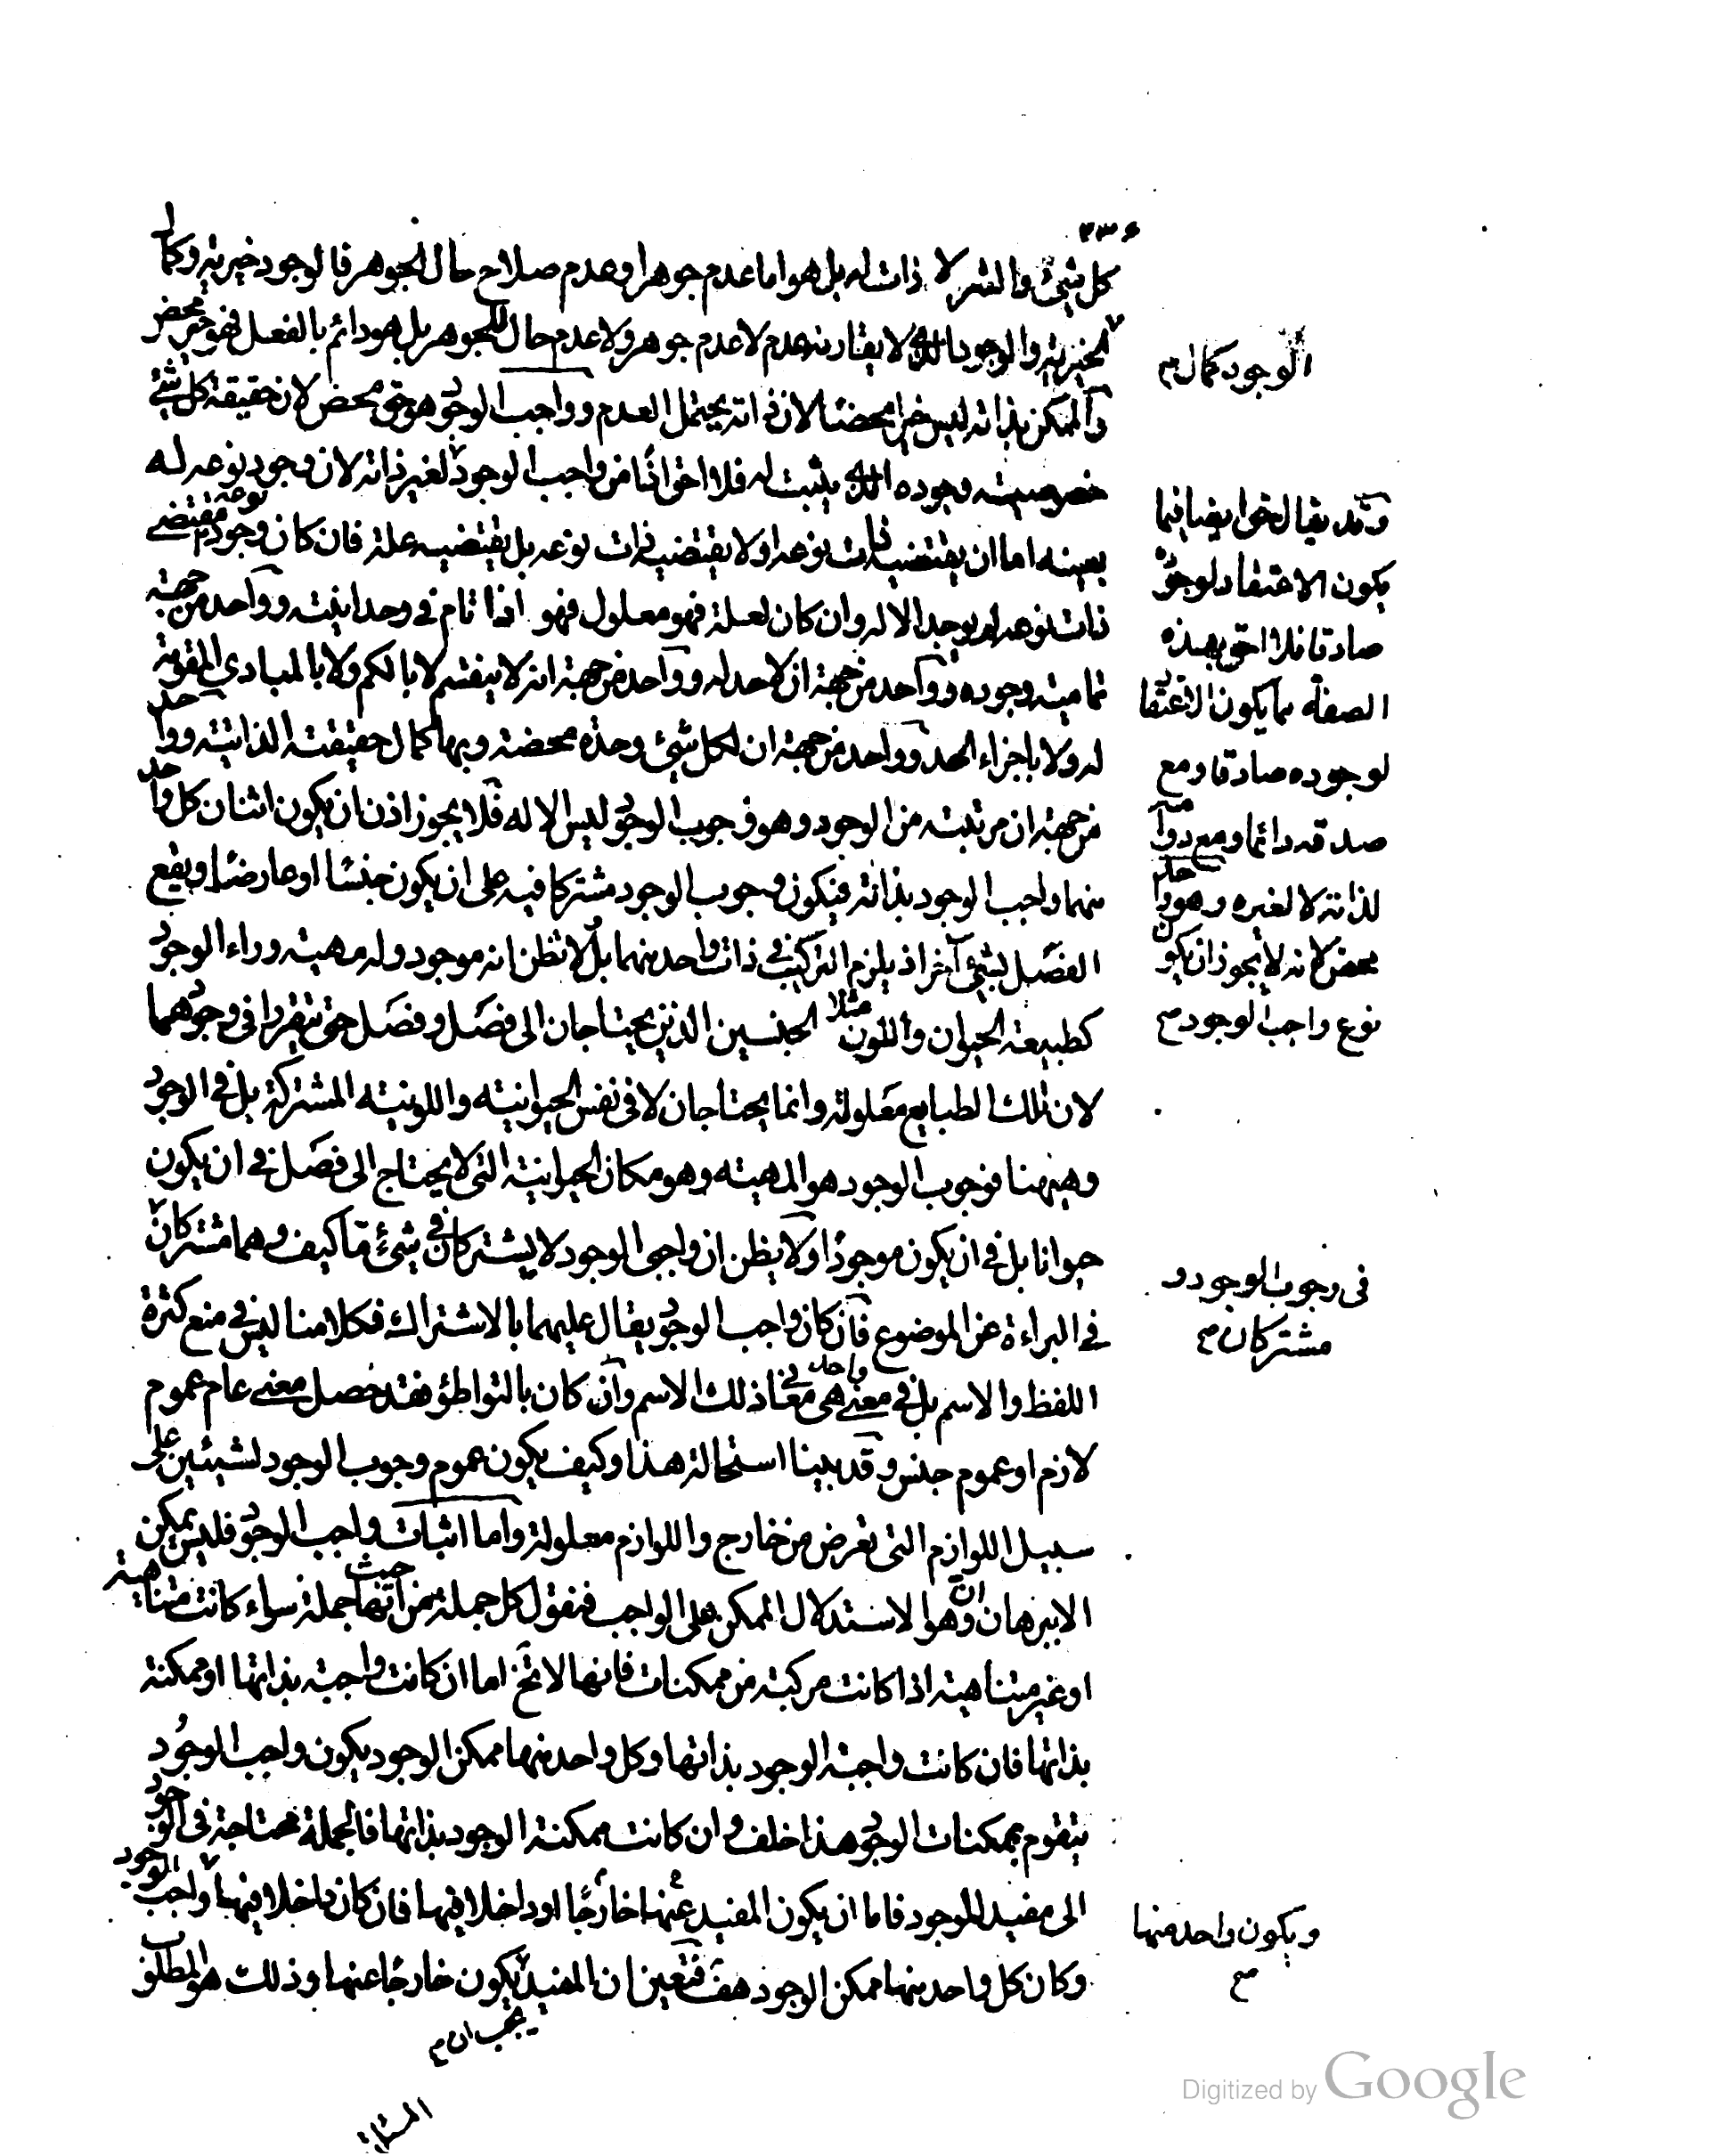 ٣٣٤
كل شئ والشر لا ذات له بل هو اما عدم جوهر او عدم صلاح حال الجوهر فالوجود خيرية وكمال
الخيرية والوجود الذى لا يقارنه عدم لا عدم جوهر ولا عدم حال للجوهر بل هو دائم بالفعل فهو خير محض
والممكن بذاته ليس خيرا محضا لان ذاته يحتمل العدم وواجب الوجود هو حق محض لان حقيقة كل شئ
خصوصية وجوده الذى يثبت له فلا احق اذا من واجب الوجود لغير ذاته لان وجود نوعه له
بعينه اما ان يقتضيه ذات نوعه او لا يقتضيه ذات نوعه بل يقتضيه علة فان كان وجود نوعه مقتضى
ذات نوعه لم يوجد الا له وان كان لعلة فهو معلول فهو اذا تام فى وحدانيته وواحد من جهة
تمامية وجوده وواحد من جهة ان لا حد له وواحد من جهة انه لا ينقسم لا بالكم ولا بالمبادى المقومة
له ولا باجزاء الحد وواحد من جهة ان لكل شئ وحدة محضة وبها كمال حقيقته الذاتية وواحد
من جهة ان مرتبته من الوجود وهو وجوب الوجود ليس الا له فلا يجوز اذن ان يكون اثنان كل واحد
منهما واجب الوجود بذاته فيكون وجوب الوجود مشتركا فيه على ان يكون جنسا او عارضا ويقع
الفصل بشئ آخر اذ يلزم التركيب فى ذات واحد منهما بل لا تظن انه موجود وله مهية وراء الوجود
كطبيعة الحيوان واللون مثلا الجنسين الذين يحتاجان الى فصل وفصل حتى تتقررا فى وجودهما
لان تلك الطبايع معلولة وانما يحتاجان لا فى نفس الحيوانية واللونية المشتركة بل فى الوجود
وههنا فوجوب الوجود هو المهية وهو مكان الحيوانية التى لا يحتاج الى فصل فى ان يكون
حيوانا بل فى ان يكون موجودا ولا يظن ان واجبى الوجود لا يشتركان فى شئ ما كيف وهما مشتركان
فى البراءة عن الموضوع فان كان واجب الوجود يقال عليهما بالاشتراك فكلامنا ليس فى منع كثرة
اللفظ والاسم بل فى معنى واحد من معانى ذلك الاسم وان كان بالتواطؤ فقد حصل معنى عام عموم
لازم او عموم جنس وقد بينا استحالة هذا وكيف يكون عموم وجوب الوجود لشيئين على
سبيل اللوازم التى تعرض من خارج واللوازم معلولة واما اثبات واجب الوجود فليس يمكن
الا ببرهان ان وهو الاستدلال الممكن على الواجب فنقول كل جملة من حيث انها جملة سواء كانت متناهية
او غير متناهية اذا كانت مركبة من ممكنات فانها لا تخ اما ان كانت واجبة بذاتها او ممكنة
بذاتها فان كانت واجبة الوجود بذاتها وكل واحد منها ممكن الوجود يكون واجب الوجود
يتقوم بممكنات الوجود هذا خلف وان كانت ممكنة الوجود بذاتها فالجملة محتاجة فى الوجود
الى مفيد للوجود فاما ان يكون المفيد عنها خارجا او داخلا فيها فان كان داخلا فيها واجب الوجود
وكان كل واحد منها ممكن الوجود هف فتعين ان المفيد يكون خارجا عنها وذلك هو المطلوب
يجب ان م
الوجود كمال م
وقد يقال حق ايضا فيما
يكون الاعتقاد لوجوده
صادقا فلا احق بهذه
الصفة مما يكون الاعتقاد
لوجوده صادقا ومع
صدقه دائما ومع دوامه
لذاته لا لغيره وهو واحد
محض لانه لا يجوز ان يكون
نوع واجب الوجود م
فى وجوب الوجود و
مشتركان م
ويكون واحد منها
م
Digitized by Google